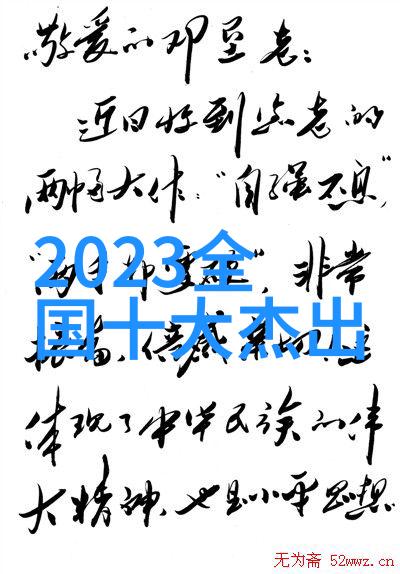 敬爱的邓垦老：
近日收到您老的
两幅大作：“自强不息”，
非常
2023全
国十大杰出
倍感
体现了中华民族的伟
大精神，也是小平思想
无为斋 52wwz.cn